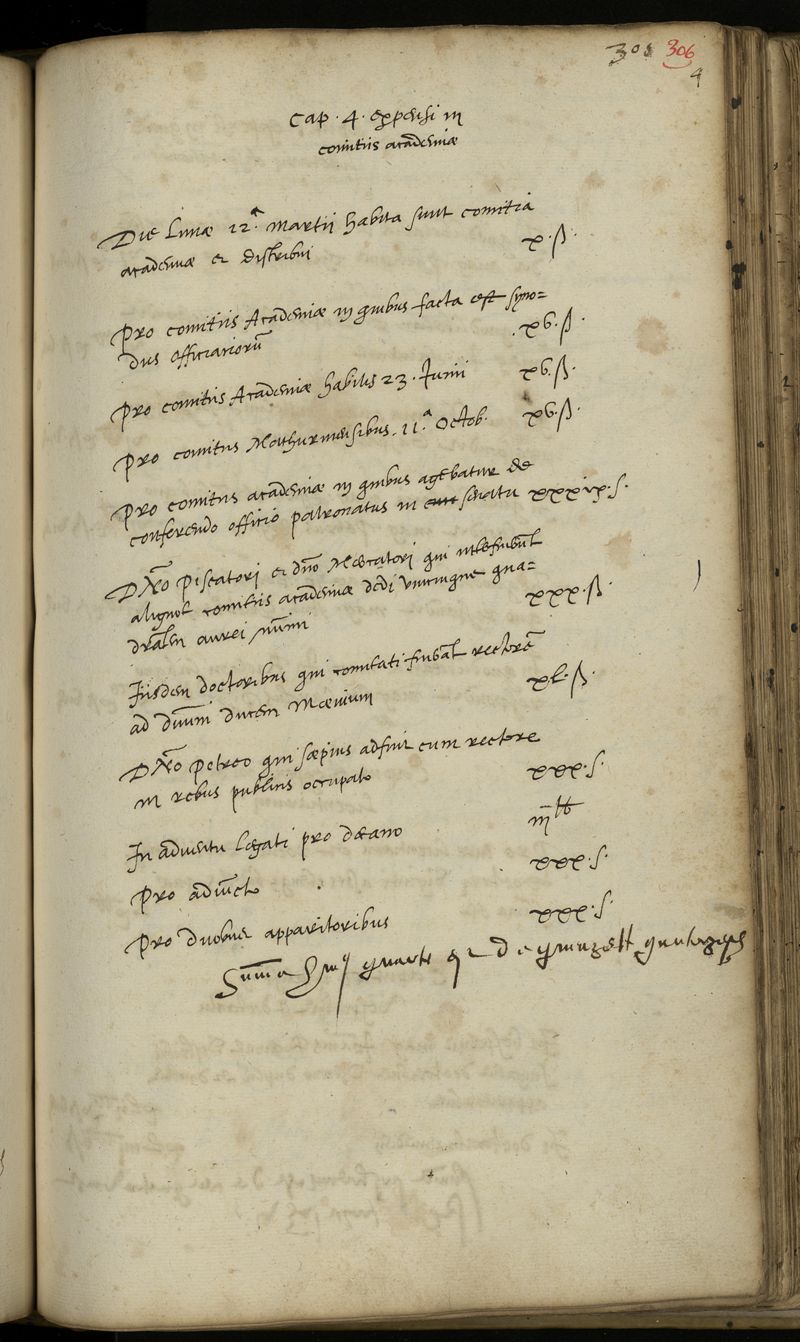 308 306
4
Cap. 4. expensi in
comitiis academiæ
Die Lunæ 12.ᵃ Martii habita sunt comitia
academiæ et distribui x. ß.
Pro comitiis Academiæ in quibus facta est syno=
dus officiariorũ .xv. ß.
Pro comitiis Academiæ habitis 23. Junii xv. ß.
Pro comitiis Mathurinensibus. 11.ᵃ Octob. xv. ß.
Pro comitiis academiæ in quibus agebatur de
conferendo officio patronatus in senatu xxxix. s.
Piscatori et dño Mercatori qui interfuerũt
aliquot comitiis academiæ dedi unicuique qua=
drãtem aurei nũmi xxx. ß.
Iisdem doctoribus qui comitati fuerãt rectorẽ
ad ducem xl. ß.
Petreo qui sæpius adfuit cum rectore
in rebus publicis occupato xxx. s.
In adventu Legati pro decano
Pro xxx. s.
Pro duobus apparitoribus xxx. s.